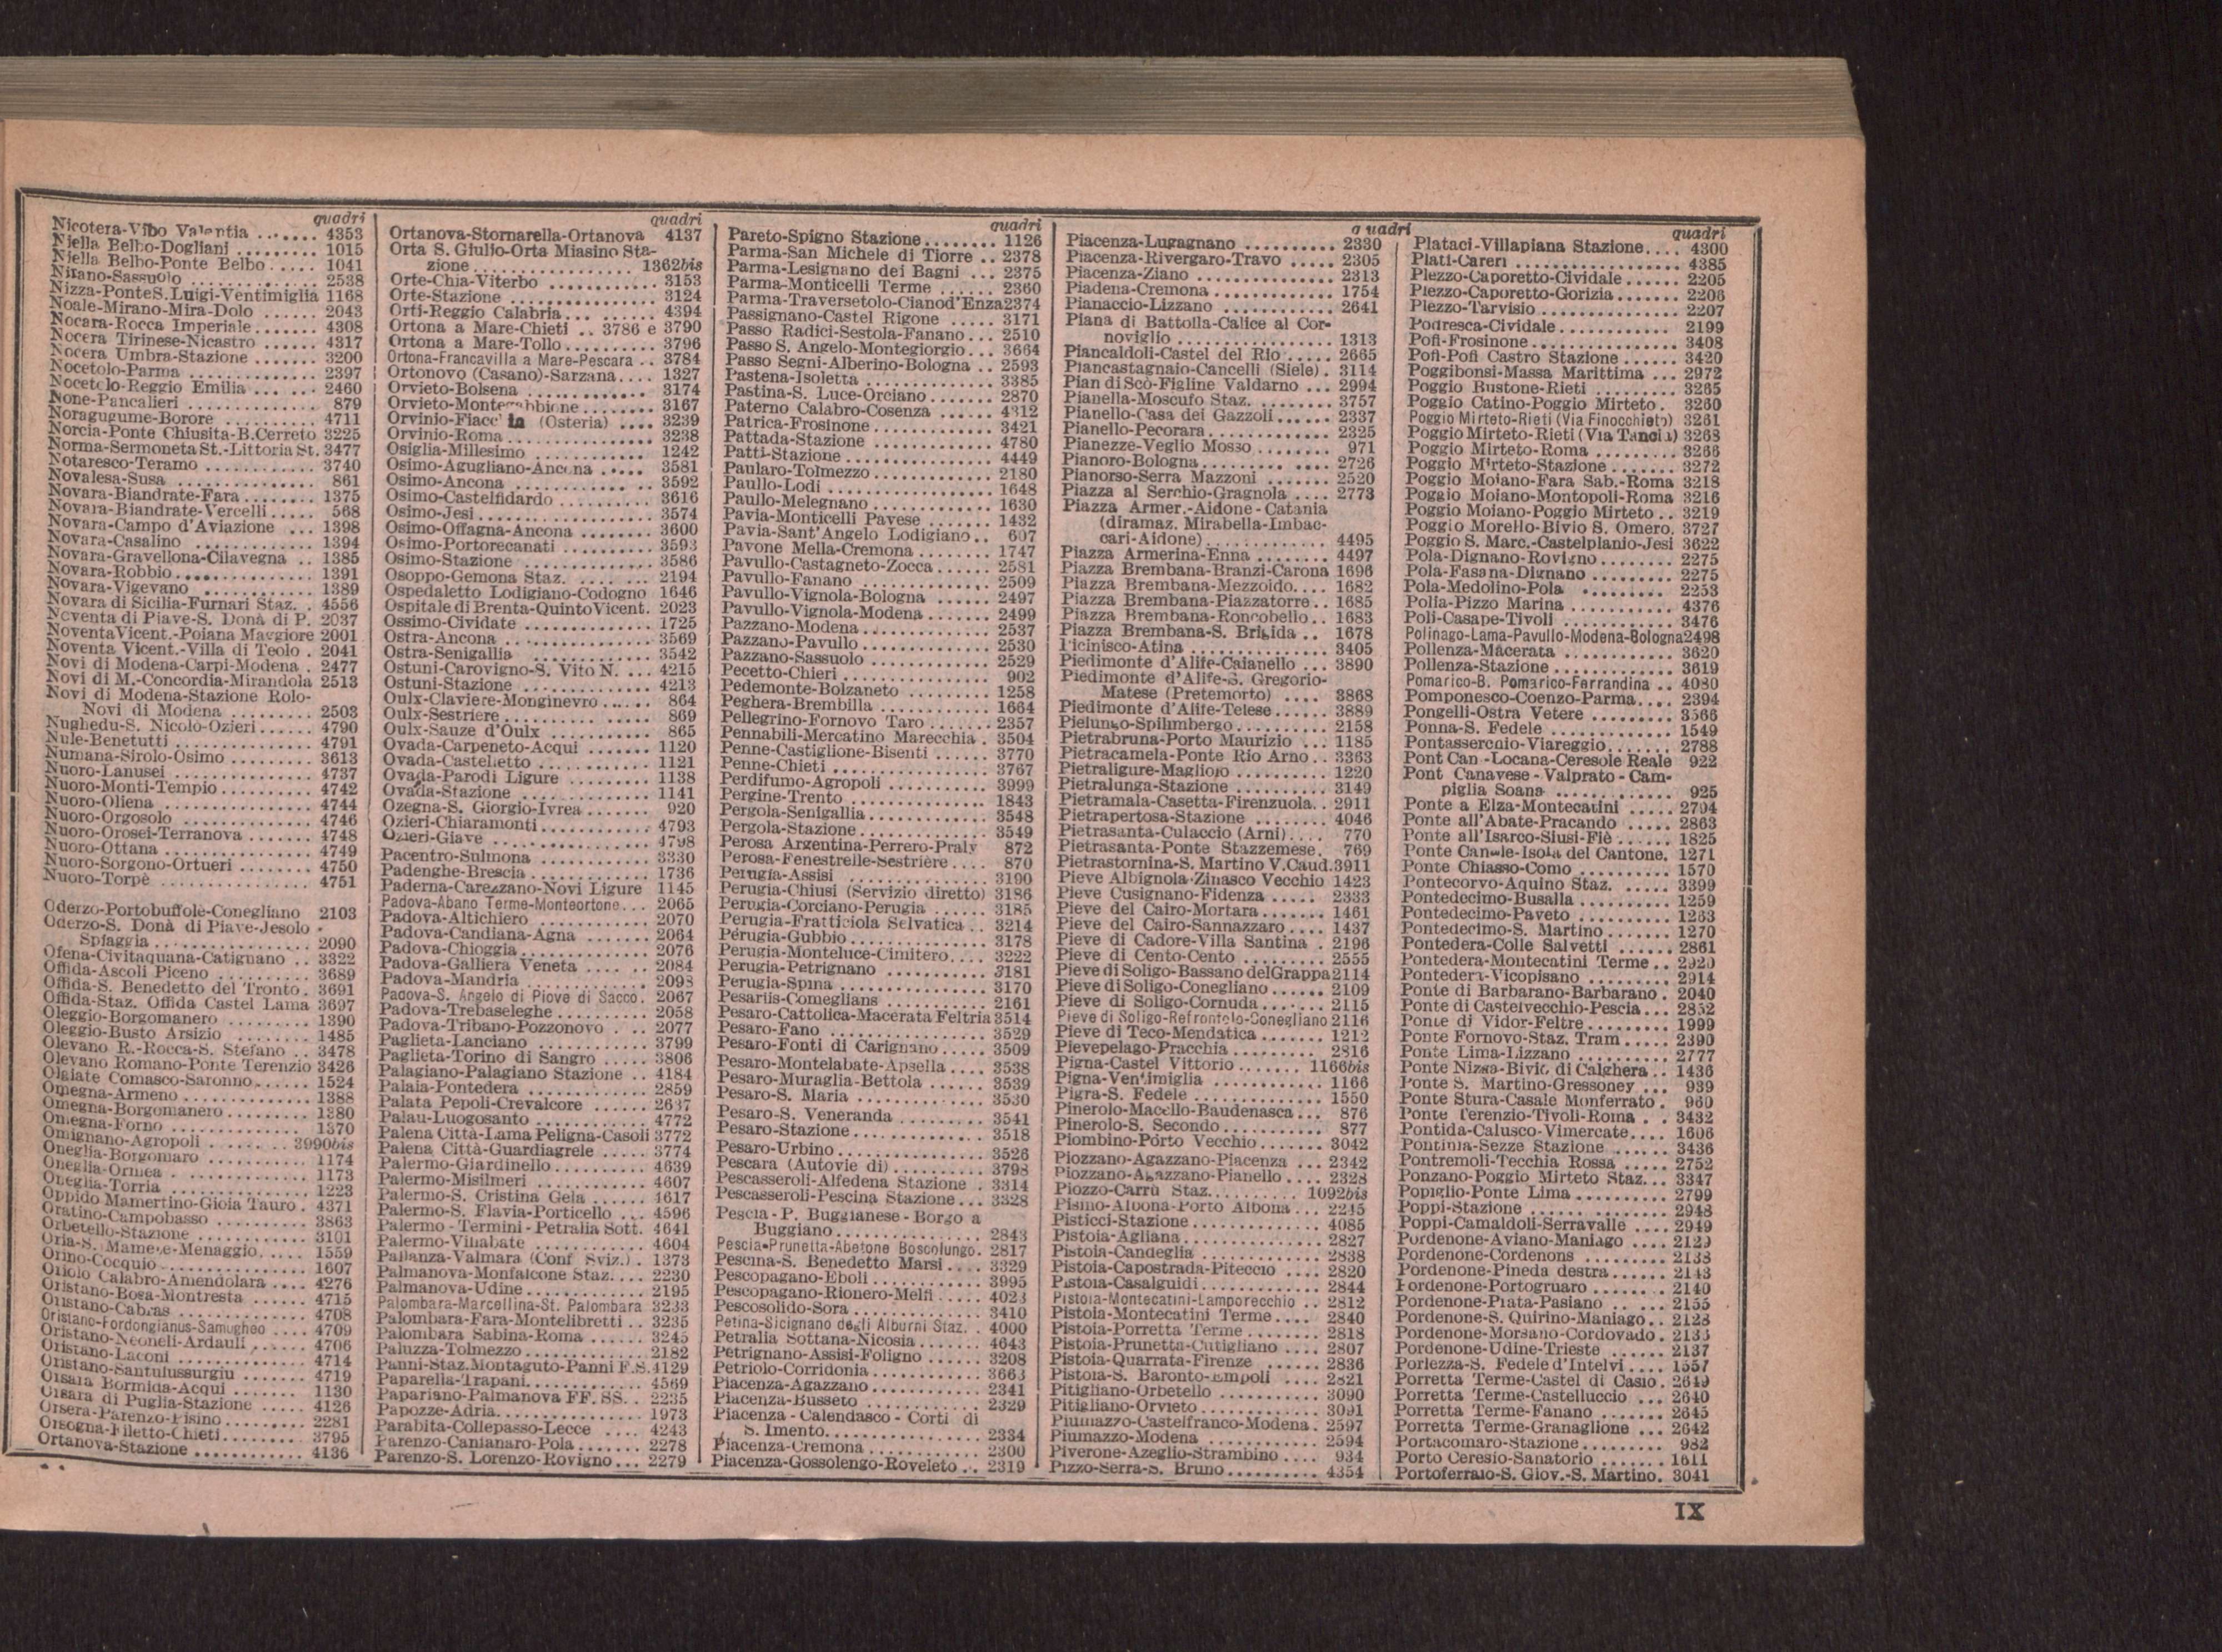 quadri
Nicotera-Vibo Valentia ....... 4353
Niella Belbo-Dogliani ......... 1015
Niella Belbo-Ponte Belbo ..... 1041
Nirano-Sassuolo ............. 2538
Nizza-Ponte S. Luigi-Ventimiglia 1168
Noale-Mirano-Mira-Dolo ...... 2043
Nocara-Rocca Imperiale ....... 4308
Nocera Tirinese-Nicastro ...... 4317
Nocera Umbra-Stazione ....... 3200
Nocetolo-Parma ............. 2397
Nocetolo-Reggio Emilia ... .. 2460
None-Pancalieri ............. 879
Noragugume-Borore .......... 4711
Norcia-Ponte Chiusita-B.Cerreto 3225
Norma-Sermoneta St.-Littoria St. 3477
Notaresco-Teramo ........... 3740
Novalesa-Susa .............. 861
Novara-Biandrate-Fara ........ 1375
Novara-Biandrate-Vercelli ..... 568
Novara-Campo d'Aviazione ... 1398
Novara-Casalino ............ 1394
Novara-Gravellona-Cilavegna .. 1385
Novara-Robbio .............. 1391
Novara-Vigevano ............ 1389
Novara di Sicilia-Furnari Staz. . 4556
Noventa di Piave-S. Donà di P. 2037
Noventa Vicent.-Poiana Maggiore 2001
Noventa Vicent.-Villa di Teolo . 2041
Novi di Modena-Carpi-Modena . 2477
Novi di M.-Concordia-Mirandola 2513
Novi di Modena-Stazione Rolo-
Novi di Modena ......... 2503
Nughedu-S. Nicolo-Ozieri ...... 4790
Nule-Benetutti .............. 4791
Numana-Sirolo-Osimo ........ 3613
Nuoro-Lanusei .............. 4737
Nuoro-Monti-Tempio ......... 4742
Nuoro-Oliena ............... 4744
Nuoro-Orgosolo ............. 4746
Nuoro-Orosei-Terranova ....... 4748
Nuoro-Ottana ............... 4749
Nuoro-Sorgono-Ortueri ....... 4750
Nuoro-Torpè ............... 4751
Oderzo-Portobuffole-Conegliano 2103
Oderzo-S. Donà di Piave-Jesolo -
Spiaggia ................ 2090
Ofena-Civitaquana-Catignano .. 3322
Offida-Ascoli Piceno ......... 3689
Offida-S. Benedetto del Tronto . 3691
Offida-Staz. Offida Castel Lama 3697
Oleggio-Borgomanero ........ 1390
Oleggio-Busto Arsizio ........ 1485
Olevano R.-Rocca-S. Stefano .. 3478
Olevano Romano-Ponte Terenzio 3426
Olgiate Comasco-Saronno ...... 1524
Omegna-Armeno ............ 1388
Omegna-Borgomanero ........ 1380
Omegna-Forno .............. 1370
Omignano-Agropoli ...... .. 3990bis
Oneglia-Borgomaro .......... 1174
Oneglia-Ormea ............. 1173
Oneglia-Torria .............. 1223
Oppido Mamertino-Gioia Tauro . 4371
Oratino-Campobasso ......... 3863
Orbetello-Stazione ........... 3101
Oria-S. Mamete-Menaggio ..... 1559
Orino-Cocquio .............. 1607
Oriolo Calabro-Amendolara .... 4276
Oristano-Bosa-Montresta ...... 4715
Oristano-Cabras ............ 4708
Oristano-Fordongianus-Samugheo .... 4709
Oristano-Neoneli-Ardauli ...... 4706
Oristano-Laconi ............. 4714
Oristano-Santulussurgiu ....... 4719
Orsara Bormida-Acqui ....... 1130
Orsara di Puglia-Stazione ..... 4126
Orsera-Parenzo-Pisino ......... 2281
Orsogna-Filetto-Chieti ......... 3795
Ortanova-Stazione ........... 4136
quadri
Ortanova-Stornarella-Ortanova 4137
Orta S. Giulio-Orta Miasino Sta-
zione ................ 1362bis
Orte-Chia-Viterbo ........... 3153
Orte-Stazione ............... 3124
Orti-Reggio Calabria ... ...... 4394
Ortona a Mare-Chieti .. 3786 e 3790
Ortona a Mare-Tollo ......... 3796
Ortona-Francavilla a Mare-Pescara .. 3784
Ortonovo (Casano)-Sarzana .... 1327
Orvieto-Bolsena ............. 3174
Orvieto-Montegabbione ........ 3167
Orvinio-Fiacc' la (Osteria) .... 3239
Orvinio-Roma .............. 3238
Osiglia-Millesimo ............ 1242
Osimo-Agugliano-Ancona ..... 3581
Osimo-Ancona ............ 3592
Osimo-Castelfidardo .......... 3616
Osimo-Jesi ................. 3574
Osimo-Offagna-Ancona ........ 3600
Osimo-Portorecanati .......... 3593
Osimo-Stazione .............. 3586
Osoppo-Gemona Staz. ........ 2194
Ospedaletto Lodigiano-Codogno 1646
Ospitale di Brenta-Quinto Vicent. 2023
Ossimo-Cividate ............. 1725
Ostra-Ancona ............... 3569
Ostra-Senigallia ............. 3542
Ostuni-Carovigno-S. Vito N. ... 4215
Ostuni-Stazione ............. 4213
Oulx-Claviere-Monginevro ...... 864
Oulx-Sestriere ............... 869
Oulx-Sauze d'Oulx .......... 865
Ovada-Carpeneto-Acqui ....... 1120
Ovada-Castelletto ............ 1121
Ovada-Parodi Ligure ......... 1138
Ovada-Stazione .............. 1141
Ozegna-S. Giorgio-Ivrea ....... 920
Ozieri-Chiaramonti ........... 4793
Ozieri-Giave ................ 4798
Pacentro-Sulmona ........... 3330
Padenghe-Brescia ............ 1736
Paderna-Carezzano-Novi Ligure 1145
Padova-Abano Terme-Monteortone ... 2065
Padova-Altichiero ............ 2070
Padova-Candiana-Agna ....... 2064
Padova-Chioggia ............. 2076
Padova-Galliera Veneta .... .. 2084
Padova-Mandria ............. 2098
Padova-S. Angelo di Piove di Sacco . 2067
Padova-Trebaseleghe ......... 2058
Padova-Tribano-Pozzonovo . .. 2077
Paglieta-Lanciano ............ 3799
Paglieta-Torino di Sangro ..... 3806
Palagiano-Palagiano Stazione .. 4184
Palaia-Pontedera ............ 2859
Palata Pepoli-Crevalcore ......
Palau-Luogosanto ............ 4772
Palena Città-Lama Peligna-Casoli 3772
Palena Città-Guardiagrele ..... 3774
Palermo-Giardinello ........... 4639
Palermo-Misilmeri ............ 4607
Palermo-S. Cristina Gela ...... 4617
Palermo-S. Flavia-Porticello ... 4596
Palermo - Termini - Petralia Sott. 4641
Palermo-Villabate ............ 4604
Pallanza-Valmara (Conf. Sviz.) . 1373
Palmanova-Monfalcone Staz. ... 2230
Palmanova-Udine ............ 2195
Palombara-Marcellina-St. Palombara 3233
Palombara-Fara-Montelibretti .. 3235
Palombara Sabina-Roma ...... 3245
Paluzza-Tolmezzo ............ 2182
Panni-Staz. Montaguto-Panni F.S. 4129
Paparella-Trapani ............ 4569
Papariano-Palmanova FF. SS. . 2235
Papozze-Adria ............... 1973
Parabita-Collepasso-Lecce .... 4243
Parenzo-Canfanaro-Pola ....... 2278
Parenzo-S. Lorenzo-Rovigno ... 2279
quadri
Pareto-Spigno Stazione ........ 1126
Parma-San Michele di Tiorre .. 2378
Parma-Lesignano dei Bagni ... 2375
Parma-Monticelli Terme ...... 2360
Parma-Traversetolo-Ciano d'Enza 2374
Passignano-Castel Rigone ..... 3171
Passo Radici-Sestola-Fanano ... 2510
Passo S. Angelo-Montegiorgio ... 3664
Passo Segni-Alberino-Bologna .. 2593
Pastena-Isoletta ............. 3385
Pastina-S. Luce-Orciano ....... 2870
Paterno Calabro-Cosenza ...... 4312
Patrica-Frosinone ............ 3421
Pattada-Stazione ............. 4780
Patti-Stazione ............... 4449
Paularo-Tolmezzo ............ 2180
Paullo-Lodi ................ 1648
Paullo-Melegnano ........... 1630
Pavia-Monticelli Pavese ....... 1432
Pavia-Sant'Angelo Lodigiano .. 607
Pavone Mella-Cremona ........ 1747
Pavullo-Castagneto-Zocca ...... 2581
Pavullo-Fanano ............. 2509
Pavullo-Vignola-Bologna ...... 2497
Pavullo-Vignola-Modena ....... 2499
Pazzano-Modena ............ 2537
Pazzano-Pavullo ............ 2530
Pazzano-Sassuolo ............ 2529
Pecetto-Chieri ............... 902
Pedemonte-Bolzaneto ......... 1258
Peghera-Brembilla ........... 1664
Pellegrino-Fornovo Taro ....... 2357
Pennabili-Mercatino Marecchia . 3504
Penne-Castiglione-Bisenti ...... 3770
Penne-Chieti ................ 3767
Perdifumo-Agropoli .......... 3999
Pergine-Trento .............. 1843
Pergola-Senigallia ............ 3548
Pergola-Stazione ............. 3549
Perosa Argentina-Perrero-Praly 872
Perosa-Fenestrelle-Sestrière .... 870
Perugia-Assisi .............. 3190
Perugia-Chiusi (Servizio diretto) 3186
Perugia-Corciano-Perugia ...... 3185
Perugia-Fratticiola Selvatica .. 3214
Perugia-Gubbio ............. 3178
Perugia-Monteluce-Cimitero .... 3222
Perugia-Petrignano ........... 3181
Perugia-Spina .............. 3170
Pesariis-Comeglians .......... 2161
Pesaro-Cattolica-Macerata Feltria 3514
Pesaro-Fano ................ 3529
Pesaro-Fonti di Carignano ..... 3509
Pesaro-Montelabate-Apsella .... 3538
Pesaro-Muraglia-Bettola ....... 3539
Pesaro-S. Maria ............ 3530
Pesaro-S. Veneranda ......... 3541
Pesaro-Stazione ............. 3518
Pesaro-Urbino .............. 3526
Pescara (Autovie di) ......... 3798
Pescasseroli-Alfedena Stazione . 3314
Pescasseroli-Pescina Stazione ... 3328
Pescia - P. Buggianese - Borgo a
Buggiano ............... 2843
Pescia-Prunetta-Abetone Boscolungo. 2817
Pescina-S. Benedetto Marsi .... 3329
Pescopagano-Eboli ........... 3995
Pescopagano-Rionero-Melfi ..... 4023
Pescosolido-Sora ............. 3410
Petina-Sicignano degli Alburni Staz. . 4000
Petralia Sottana-Nicosia ....... 4643
Petrignano-Assisi-Foligno ...... 3208
Petriolo-Corridonia ........... 3663
Piacenza-Agazzano ........... 2341
Piacenza-Busseto ............ 2329
Piacenza - Calendasco - Corti di
S. Imento ............... 2334
Piacenza-Cremona ........... 2300
Piacenza-Gossolengo-Roveleto .. 2319
quadri
Piacenza-Lugagnano .......... 2330
Piacenza-Rivergaro-Travo ..... 2305
Piacenza-Ziano .............. 2313
Piadena-Cremona ............ 1754
Pianaccio-Lizzano ............ 2641
Piana di Battolla-Calice al Cor-
noviglio ................ 1313
Piancaldoli-Castel del Rio ..... 2665
Piancastagnaio-Cancelli (Siele) . 3114
Pian di Scò-Figline Valdarno ... 2994
Pianella-Moscufo Staz. ........ 3757
Pianello-Casa dei Gazzoli ...... 2337
Pianello-Pecorara ............ 2325
Pianezze-Veglio Mosso ........ 971
Pianoro-Bologna ......... .... 2726
Pianorso-Serra Mazzoni ....... 2520
Piazza al Serchio-Gragnola .... 2773
Piazza Armer.-Aidone - Catania
(diramaz. Mirabella-Imbac-
cari-Aidone) ............ 4495
Piazza Armerina-Enna ........ 4497
Piazza Brembana-Branzi-Carona 1696
Piazza Brembana-Mezzoldo .... 1682
Piazza Brembana-Piazzatorre .. 1685
Piazza Brembana-Roncobello .. 1683
Piazza Brembana-S. Brigida .. 1678
Picinisco-Atina .............. 3405
Piedimonte d'Alife-Caianello ... 3890
Piedimonte d'Alife-S. Gregorio-
Matese (Pretemorto) .... 3868
Piedimonte d'Alife-Telese ...... 3889
Pielungo-Spilimbergo .......... 2158
Pietrabruna-Porto Maurizio ... 1185
Pietracamela-Ponte Rio Arno .. 3363
Pietraligure-Magliolo .......... 1220
Pietralunga-Stazione .......... 3149
Pietramala-Casetta-Firenzuola .. 2911
Pietrapertosa-Stazione ........ 4046
Pietrasanta-Culaccio (Arni) .... 770
Pietrasanta-Ponte Stazzemese. 769
Pietrastornina-S. Martino V.Caud. 3911
Pieve Albignola-Zinasco Vecchio 1423
Pieve Cusignano-Fidenza ..... 2333
Pieve del Cairo-Mortara ....... 1461
Pieve del Cairo-Sannazzaro .... 1437
Pieve di Cadore-Villa Santina . 2196
Pieve di Cento-Cento ......... 2555
Pieve di Soligo-Bassano del Grappa 2114
Pieve di Soligo-Conegliano ...... 2109
Pieve di Soligo-Cornuda ....... 2115
Pieve di Soligo-Refrontolo-Conegliano 2116
Pieve di Teco-Mendatica ....... 1212
Pievepelago-Pracchia ......... 2816
Pigna-Castel Vittorio ....... 1166bis
Pigna-Ventimiglia ............ 1166
Pigra-S. Fedele ............. 1550
Pinerolo-Macello-Baudenasca ... 876
Pinerolo-S. Secondo ........... 877
Piombino-Porto Vecchio ....... 3042
Piozzano-Agazzano-Piacenza ... 2342
Piozzano-Agazzano-Pianello .... 2328
Piozzo-Carrù Staz. ......... 1092bis
Pisino-Albona-Porto Albona ... 2245
Pisticci-Stazione ............. 4085
Pistoia-Agliana .............. 2827
Pistoia-Candeglia ............ 2838
Pistoia-Capostrada-Piteccio .... 2820
Pistoia-Casalguidi ............ 2844
Pistoia-Montecatini-Lamporecchio .. 2812
Pistoia-Montecatini Terme .... 2840
Pistoia-Porretta Terme ........ 2818
Pistoia-Prunetta-Cutigliano .... 2807
Pistoia-Quarrata-Firenze ...... 2836
Pistoia-S. Baronto-Empoli .... 2821
Pitigliano-Orbetello .......... 3090
Pitigliano-Orvieto ............ 3091
Piumazzo-Castelfranco-Modena . 2597
Piumazzo-Modena ........... 2594
Piverone-Azeglio-Strambino .... 934
Pizzo-Serra-S. Bruno .......... 4354
quadri
Plataci-Villapiana Stazione .... 4300
Plati-Careri ................. 4385
Plezzo-Caporetto-Cividale ...... 2205
Plezzo-Caporetto-Gorizia ....... 2206
Plezzo-Tarvisio .............. 2207
Podresca-Cividale ............ 2199
Pofi-Frosinone ............... 3408
Pofi-Pofi Castro Stazione ...... 3420
Poggibonsi-Massa Marittima ... 2972
Poggio Bustone-Rieti ......... 3265
Poggio Catino-Poggio Mirteto . 3260
Poggio Mirteto-Rieti (Via Finocchieto) 3261
Poggio Mirteto-Rieti (Via Tancia) 3268
Poggio Mirteto-Roma ......... 3266
Poggio Mirteto-Stazione ....... 3272
Poggio Moiano-Fara Sab.-Roma 3218
Poggio Moiano-Montopoli-Roma 3216
Poggio Moiano-Poggio Mirteto .. 3219
Poggio Morello-Bivio S. Omero. 3727
Poggio S. Marc.-Castelplanio-Jesi 3622
Pola-Dignano-Rovigno ........ 2275
Pola-Fasana-Dignano ......... 2275
Pola-Medolino-Pola ......... 2253
Polia-Pizzo Marina ........... 4376
Poli-Casape-Tivoli ............ 3476
Polinago-Lama-Pavullo-Modena-Bologna 2498
Pollenza-Macerata ............ 3620
Pollenza-Stazione ............ 3619
Pomarico-B. Pomarico-Ferrandina .. 4080
Pomponesco-Coenzo-Parma .... 2394
Pongelli-Ostra Vetere ......... 3566
Ponna-S. Fedele ............. 1549
Pontasserchio-Viareggio ....... 2788
Pont Can.-Locana-Ceresole Reale 922
Pont Canavese - Valprato - Cam-
piglia Soana ............ 925
Ponte a Elza-Montecatini ..... 2794
Ponte all'Abate-Pracando ..... 2863
Ponte all'Isarco-Siusi-Fiè ...... 1825
Ponte Canale-Isola del Cantone. 1271
Ponte Chiasso-Como ......... 1570
Pontecorvo-Aquino Staz. ..... 3399
Pontedecimo-Busalla ......... 1259
Pontedecimo-Paveto .......... 1263
Pontedecimo-S. Martino ....... 1270
Pontedera-Colle Salvetti ...... 2861
Pontedera-Montecatini Terme .. 2920
Pontedera-Vicopisano ......... 2914
Ponte di Barbarano-Barbarano . 2040
Ponte di Castelvecchio-Pescia ... 2852
Ponte di Vidor-Feltre ......... 1999
Ponte Fornovo-Staz. Tram ..... 2390
Ponte Lima-Lizzano .......... 2777
Ponte Nizza-Bivio di Calghera .. 1436
Ponte S. Martino-Gressoney ... 939
Ponte Stura-Casale Monferrato . 960
Ponte Terenzio-Tivoli-Roma . . 3432
Pontida-Calusco-Vimercate .... 1606
Pontinia-Sezze Stazione ....... 3436
Pontremoli-Tecchia Rossa ..... 2752
Ponzano-Poggio Mirteto Staz. .. 3347
Popiglio-Ponte Lima .......... 2799
Poppi-Stazione .............. 2948
Poppi-Camaldoli-Serravalle .... 2949
Pordenone-Aviano-Maniago .... 2129
Pordenone-Cordenons ......... 2138
Pordenone-Pineda destra ...... 2143
Pordenone-Portogruaro ........ 2140
Pordenone-Prata-Pasiano .. ... 2155
Pordenone-S. Quirino-Maniago .. 2128
Pordenone-Morsano-Cordovado .
Pordenone-Udine-Trieste ...... 2137
Porlezza-S. Fedele d'Intelvi .... 1557
Porretta Terme-Castel di Casio . 2649
Porretta Terme-Castelluccio ... 2640
Porretta Terme-Fanano ....... 2645
Porretta Terme-Granaglione ... 2642
Portacomaro-Stazione ......... 982
Porto Ceresio-Sanatorio ....... 1611
Portoferraio-S. Giov.-S. Martino. 3041
IX